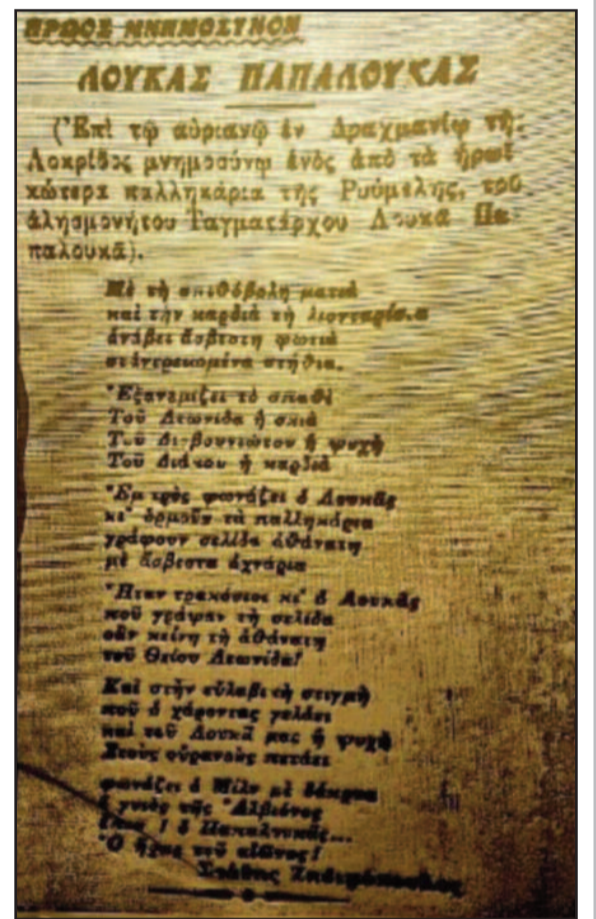 ΠΡΟΣ ΜΝΗΜΟΣΥΝΟΝ
ΛΟΥΚΑΣ ΠΑΠΑΛΟΥΚΑΣ
(Ἐπὶ τῷ αὐριανῷ ἐν Δραχμανίῳ τῆς
Λοκρίδος μνημοσύνῳ ἑνὸς ἀπὸ τὰ ἡρωϊ-
κώτερα παλληκάρια τῆς Ρούμελης, τοῦ
ἀλησμονήτου Ταγματάρχου Λουκᾶ Πα-
παλουκᾶ).
Μὲ τὴ σπιθόβολη ματιὰ
καὶ τὴν καρδιὰ τὴ λιονταρίσια
ἀνάβει ἄσβεστη φωτιὰ
στ' ἀντρειωμένα στήθια.
Ἐξανεμίζει τὸ σπαθὶ
Τοῦ Λεωνίδα ἡ σκιὰ
Τοῦ Δυοβουνιώτου ἡ ψυχὴ
Τοῦ Διάκου ἡ καρδιὰ
Ἐμπρὸς φωνάζει ὁ Λουκᾶς
κι' ὁρμοῦν τὰ παλληκάρια
γράφουν σελίδα ἀθάνατη
μὲ ἄσβεστα ἀχνάρια
Ἦταν τρακόσιοι κι' ὁ Λουκᾶς
ποῦ γράψαν τὴ σελίδα
σὰν κείνη τὴ ἀθάνατη
τοῦ Θείου Λεωνίδα!
Καὶ στὴν εὐλαβικὴ στιγμὴ
ποῦ ὁ χάροντας γελάει
καὶ τοῦ Λουκᾶ μας ἡ ψυχὴ
Στοὺς οὐρανοὺς πετάει
φωνάζει ὁ Μὶλν μὲ δάκρυα
ὁ γυιὸς τῆς Ἀλβιόνος
! ὁ Παπαλουκᾶς...
Ὁ ἥρως τοῦ αἰῶνος!
Στάθης